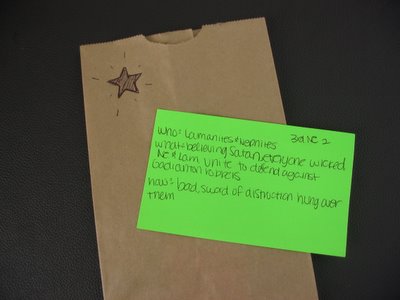 who= Lamanites & Nephites 3rd NE 2
what= believing Satan, everyone wicked
NE & Lam unite to defend against
Gadianton robbers
how= bad, sword of distruction hung over
them